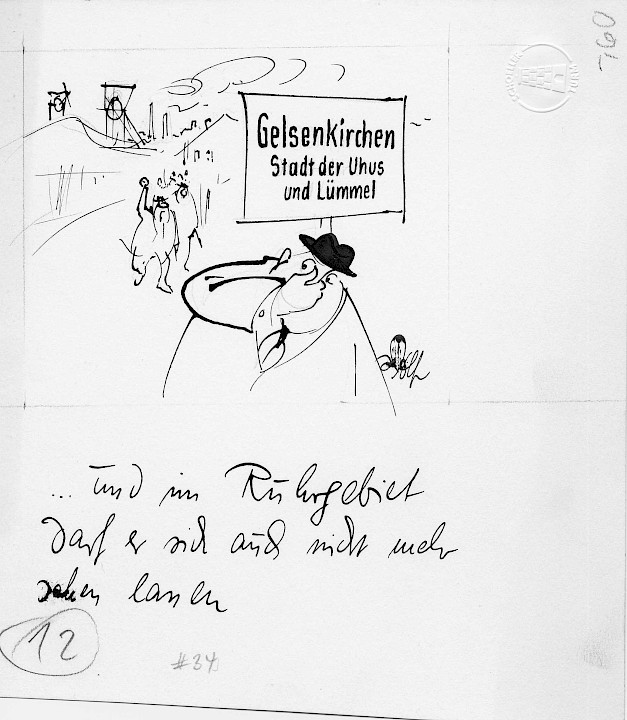 760
Gelsenkirchen
Stadt der Uhus
und Lümmel
... und im Ruhrgebiet
darf er sich auch nicht mehr
sehen lassen
12
#34